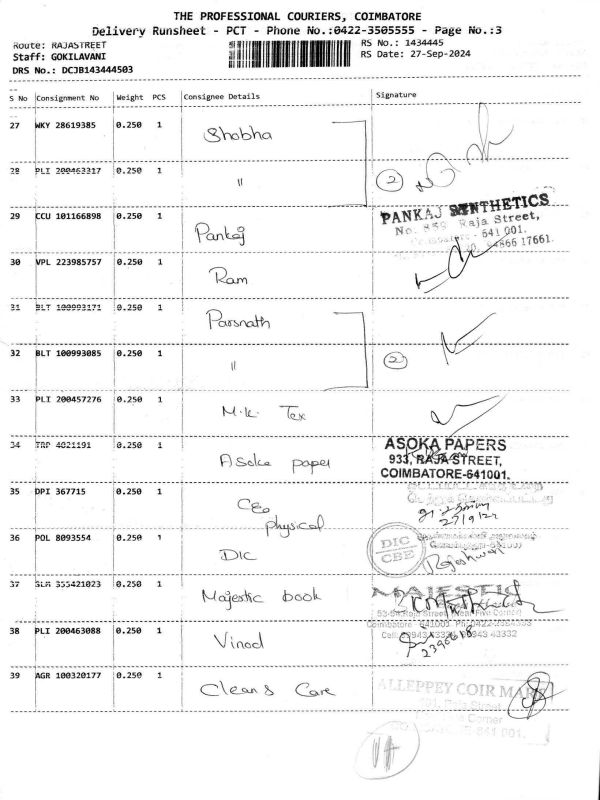 THE PROFESSIONAL COURIERS, COIMBATORE
Delivery Runsheet - PCT - Phone No.:0422-3505555 - Page No.:3
Route: RAJASTREET
RS No.: 1434445
Staff: GOKILAVANI
RS Date: 27-Sep-2024
DRS No.: DCJB143444503
S No Consignment No Weight PCS Consignee Details Signature
27 WKY 28619385 0.250 1 Shobha
28 PLI 200463317 0.250 1 "
2
29 CCU 101166898 0.250 1 Pankaj
PANKAJ SYNTHETICS
No. 859 Raja Street,
641 001.
30 VPL 223985757 0.250 1 Ram
31 BLT 100993171 0.250 1 Parsnath
32 BLT 100993085 0.250 1 "
2
33 PLI 200457276 0.250 1 M.K. Tex
34 TRP 4021191 0.250 1 Asoka paper
ASOKA PAPERS
933, RAJA STREET,
COIMBATORE-641001.
35 DPI 367715 0.250 1 CEO
physical
36 POL 8093554 0.250 1 DIC
DIC
CBE
Rajeshwari
37 SLM 355421023 0.250 1 Majestic book
MAJESTIC
38 PLI 200463088 0.250 1 Vinod
39 AGR 100320177 0.250 1 Clean & Care
ALLEPPEY COIR MARK
Raja Street
Corner
641 001.